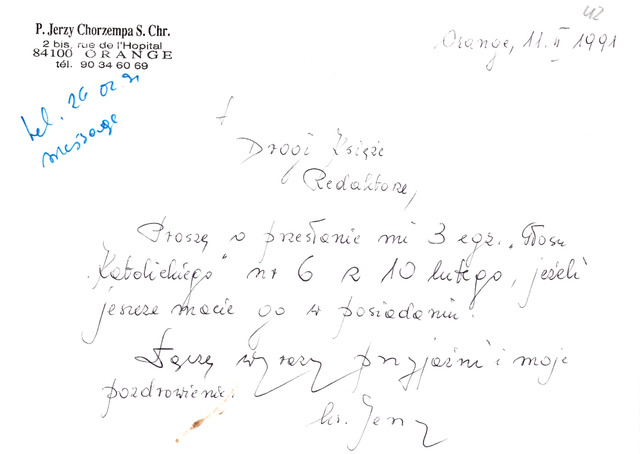 42
P. Jerzy Chorzempa S. Chr.
2 bis, rue de l'Hopital
84100 ORANGE
tél. 90 34 60 69
Orange, 11.II 1991
tel. 26 02 91
message
+
Drogi Księże
Redaktorze,
Proszę o przesłanie mi 3 egz. „Głosu
Katolickiego" nr 6 z 10 lutego, jeżeli
jeszcze macie go w posiadaniu.
Łączę wyrazy przyjaźni i moje
pozdrowienia.
ks. Jerzy